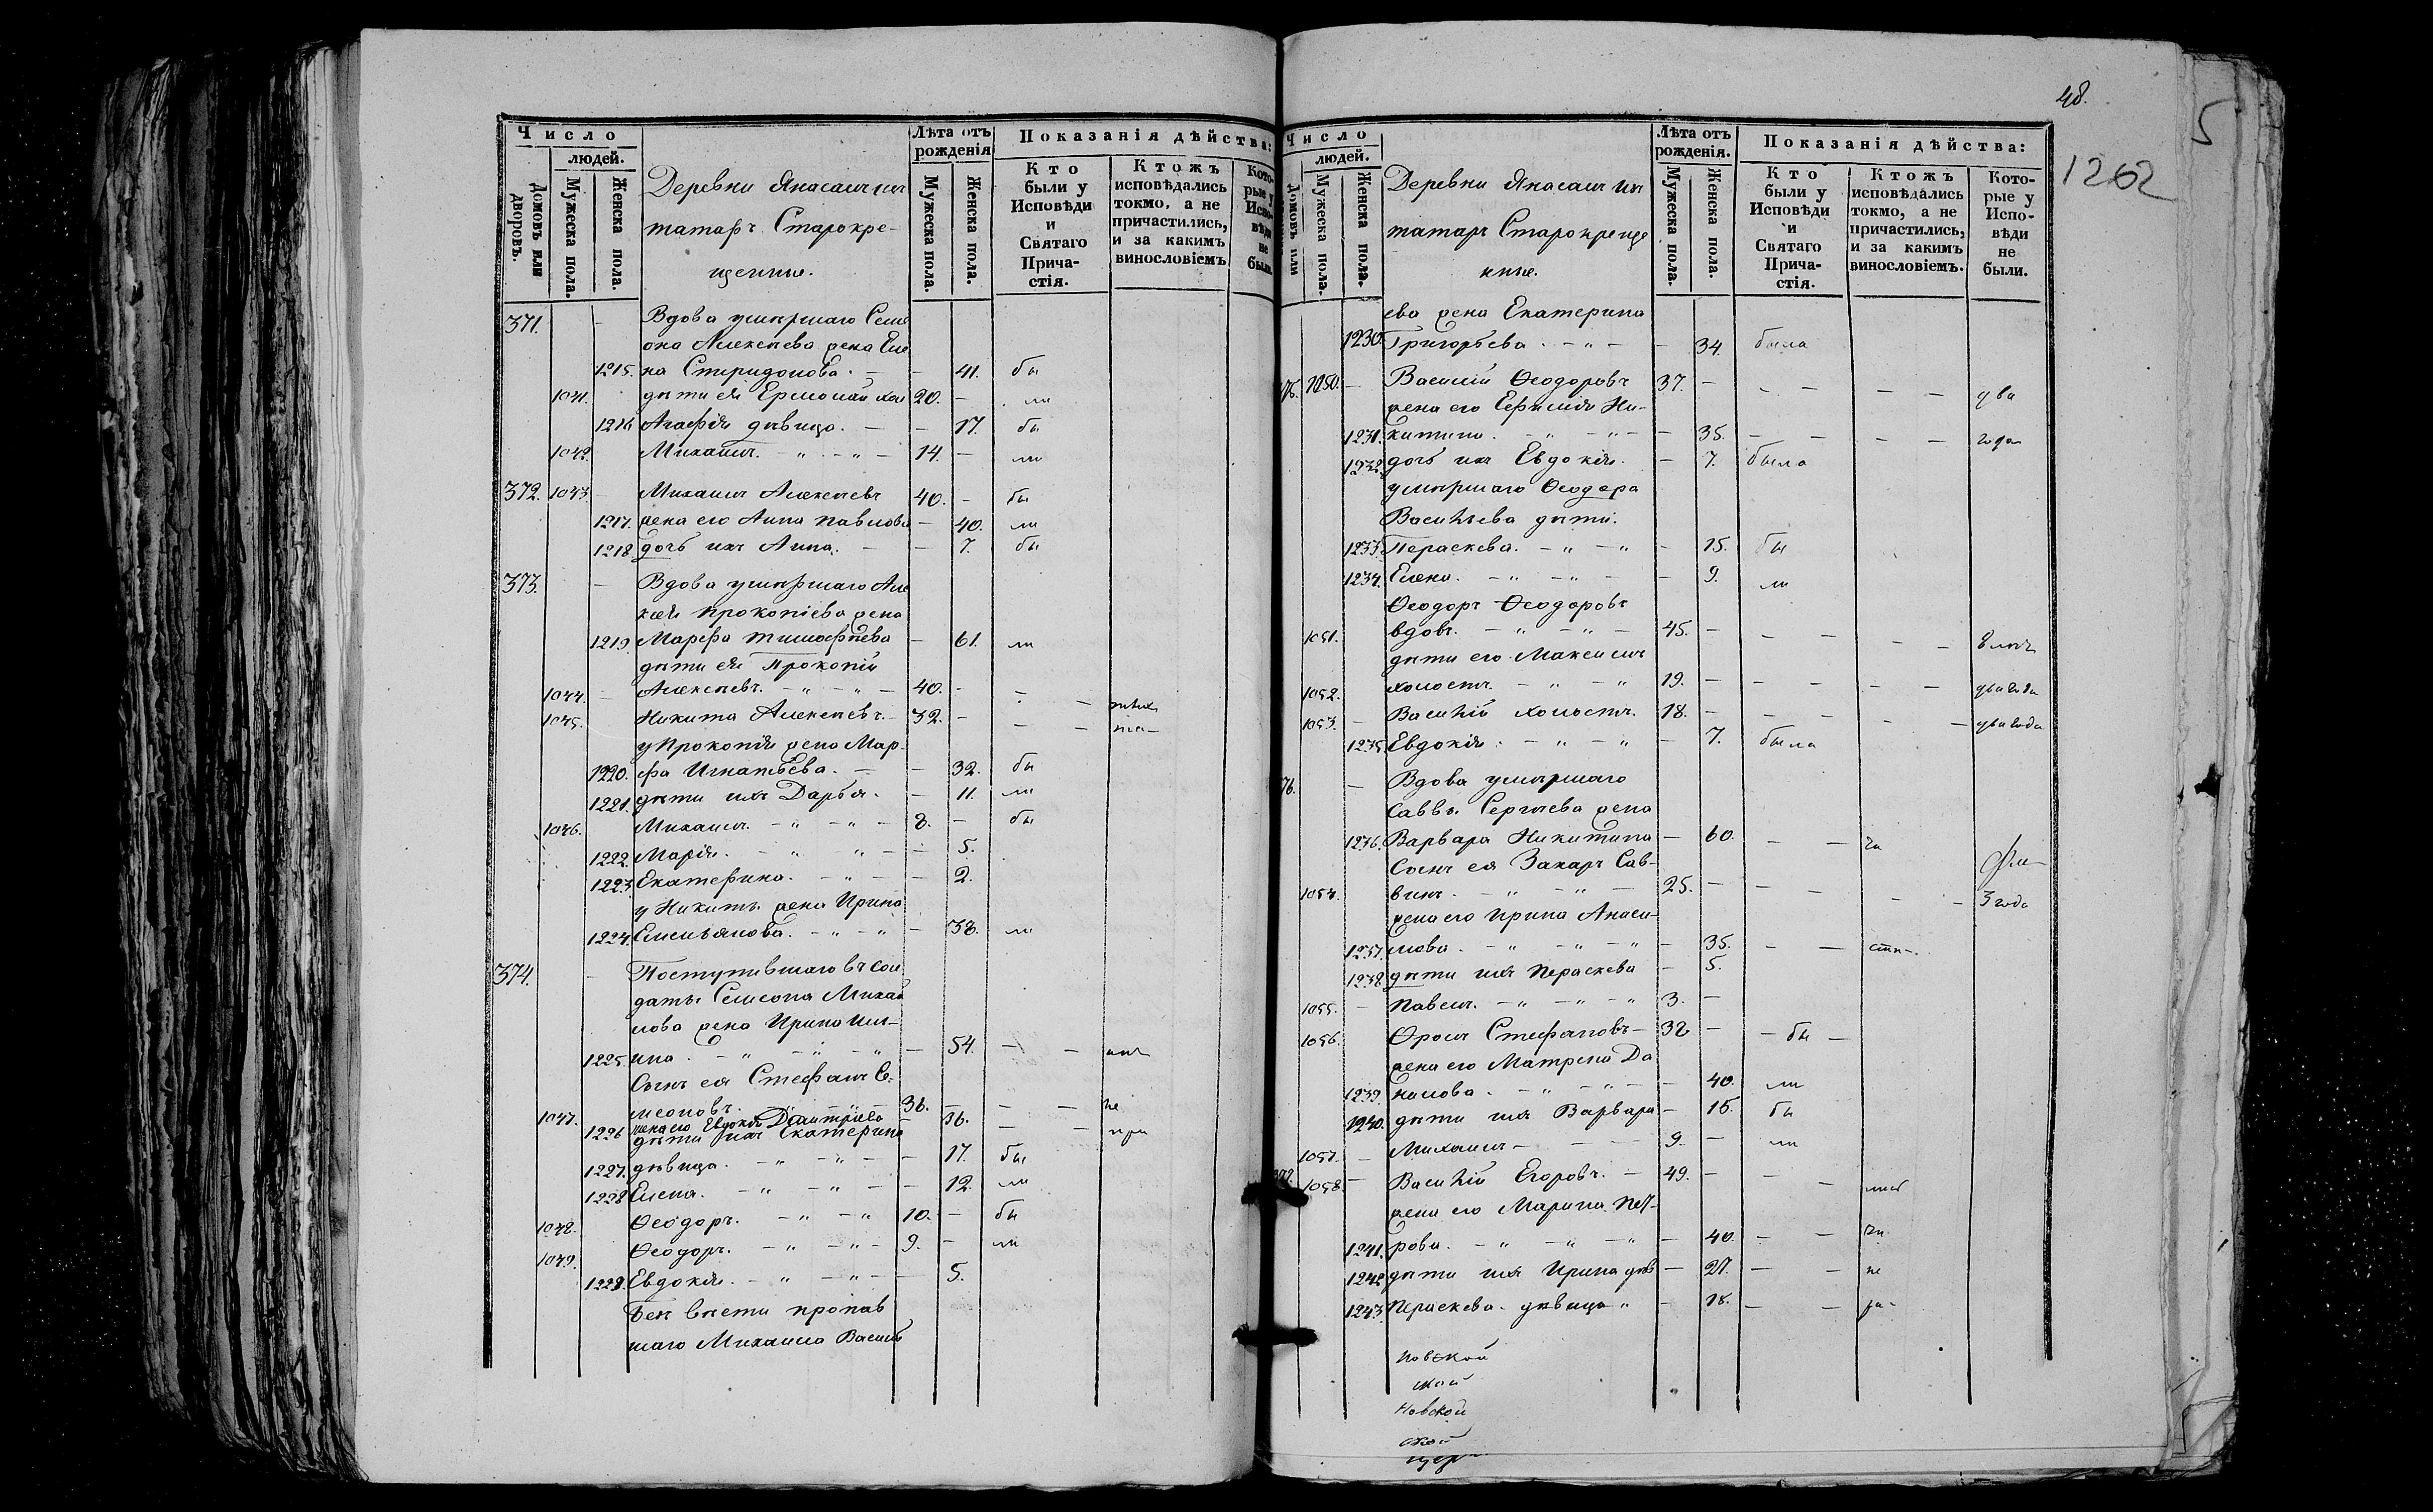 48.
1262
5
Число
людей.
Домовъ или дворовъ.
Мужеска пола.
Женска пола.
Деревни Янасалъ
татаръ Старокре-
щенные.
Лѣта отъ рожденія
Мужеска пола.
Женска пола.
Показанія дѣйства:
Кто были у Исповѣди и Святаго Прича-стія.
Ктожъ исповѣдались токмо, а не причастились, и за какимъ винословіемъ
Кото-рые у Испо-вѣди не были.
371. — Вдова умершаго Семе
она Алексѣева жена Еле
1215. на Спиридонова. — — 41. бы
1041. дѣти ея Ермолай хол 20. — ли
1216 Агафія дѣвица. — — 17. бы
1042. Михаилъ. — „ — „ — 14. — ли
372. 1043. — Михаилъ Алексѣевъ 40. — бы
1217. жена его Анна Павлова — 40. ли
1218 дочь ихъ Анна. — — 7. бы
373. — Вдова умершаго Але
ксѣя Прокопіева жена
1219. Марфа Тимофѣева — 61. ли
дѣти ея Прокопій
1044. — Алексѣевъ. — „ — „ — 40. — — —
1045. Никита Алексѣевъ. — 32. — — —
у Прокопія жена Мар-
1220. фа Игнатьева. — — 32. бы
1221. дѣти ихъ Дарья. — — 11. ли
1046. Михаилъ. — „ — „ — 8. — бы
1222. Марія. — „ „ — — 5.
1223. Екатерина. — „ — — 2.
у Никиты жена Ирина
1224. Емельянова. — „ — „ — 38. ли
374. — Поступившаго въ сол
даты Семеона Михай
лова жена Ирина Иль-
1225. ина. — „ — „ — „ — 54. — —
Сынъ ея Стефанъ Се-
1047. меоновъ. 36. — — — не
1226 жена его Евдокія Дмитріева — 36. — — при
дѣти ихъ Екатерина
1227. дѣвица. — „ — „ — — 17. бы
1228 Елена. — „ — „ — — 12. ли
1048. Ѳеодоръ. — „ — „ 10. — бы
1049. Ѳеодоръ. — „ — „ — 9. — ли
1229. Евдокія. — „ — „ — — 5.
Безъ вѣсти пропав
шаго Михаила Василь
Число
людей.
Домовъ или
Мужеска пола.
Женска пола.
Деревни Янасалъ
татаръ Старокреще
нные.
Лѣта отъ рожденія.
Мужеска пола.
Женска пола.
Показанія дѣйства:
Кто были у Исповѣди и Святаго Прича-стія.
Ктожъ исповѣдались токмо, а не причастились, и за какимъ винословіемъ.
Кото-рые у Испо-вѣди не были.
ева жена Екатерина
1230. Григорьева. — „ — — 34. была
1050. — Василій Ѳеодоровъ 37. — — — — — два
жена его Ефимія Ни-
1231. китина. — „ — „ — — 35. — — — — года
1232. дочь ихъ Евдокія. — 7. была
умершаго Ѳеодора
Васильева дѣти.
1233. Параскева. — „ — „ — 15. бы
1234. Елена. — „ — „ — — 9. ли
Ѳеодоръ Ѳеодоровъ
1051. вдовъ. — „ — „ — 45. — — — — —
дѣти его Максимъ
1052. холостъ. — „ — „ 19. — — — — — два года
1053. — Василій холостъ. 18. — — — — — два года
1235. Евдокія. — „ — „ — 7. была
76. — Вдова умершаго
Саввы Сергѣева жена
1236. Варвара Никитина — 60. — —
Сынъ ея Захаръ Сав-
1054. винъ. — „ — „ — 25. — — — — — 3 года
жена его Ирина Анаси-
1237. мова. — „ — „ — „ — 35. — —
1238. дѣти ихъ Параскева — 5.
1055. — Павелъ. — „ — „ — „ 3. —
1056. Фролъ Стефановъ — 32 — — бы —
жена его Матрена Да
1239. нилова. — „ — „ — — 40. ли
1240. дѣти ихъ Варвара — 16. бы
1057. — Михаилъ — — — 9. — ли
1058. — Василій Егоровъ. — 49. — — —
жена его Марина Пет-
1241. рова. — „ — „ — „ — 40. — —
1242. дѣти ихъ Ирина дѣв — 21. — — не
1243. Параскева дѣвица „ — 18. — —
новской
Новской